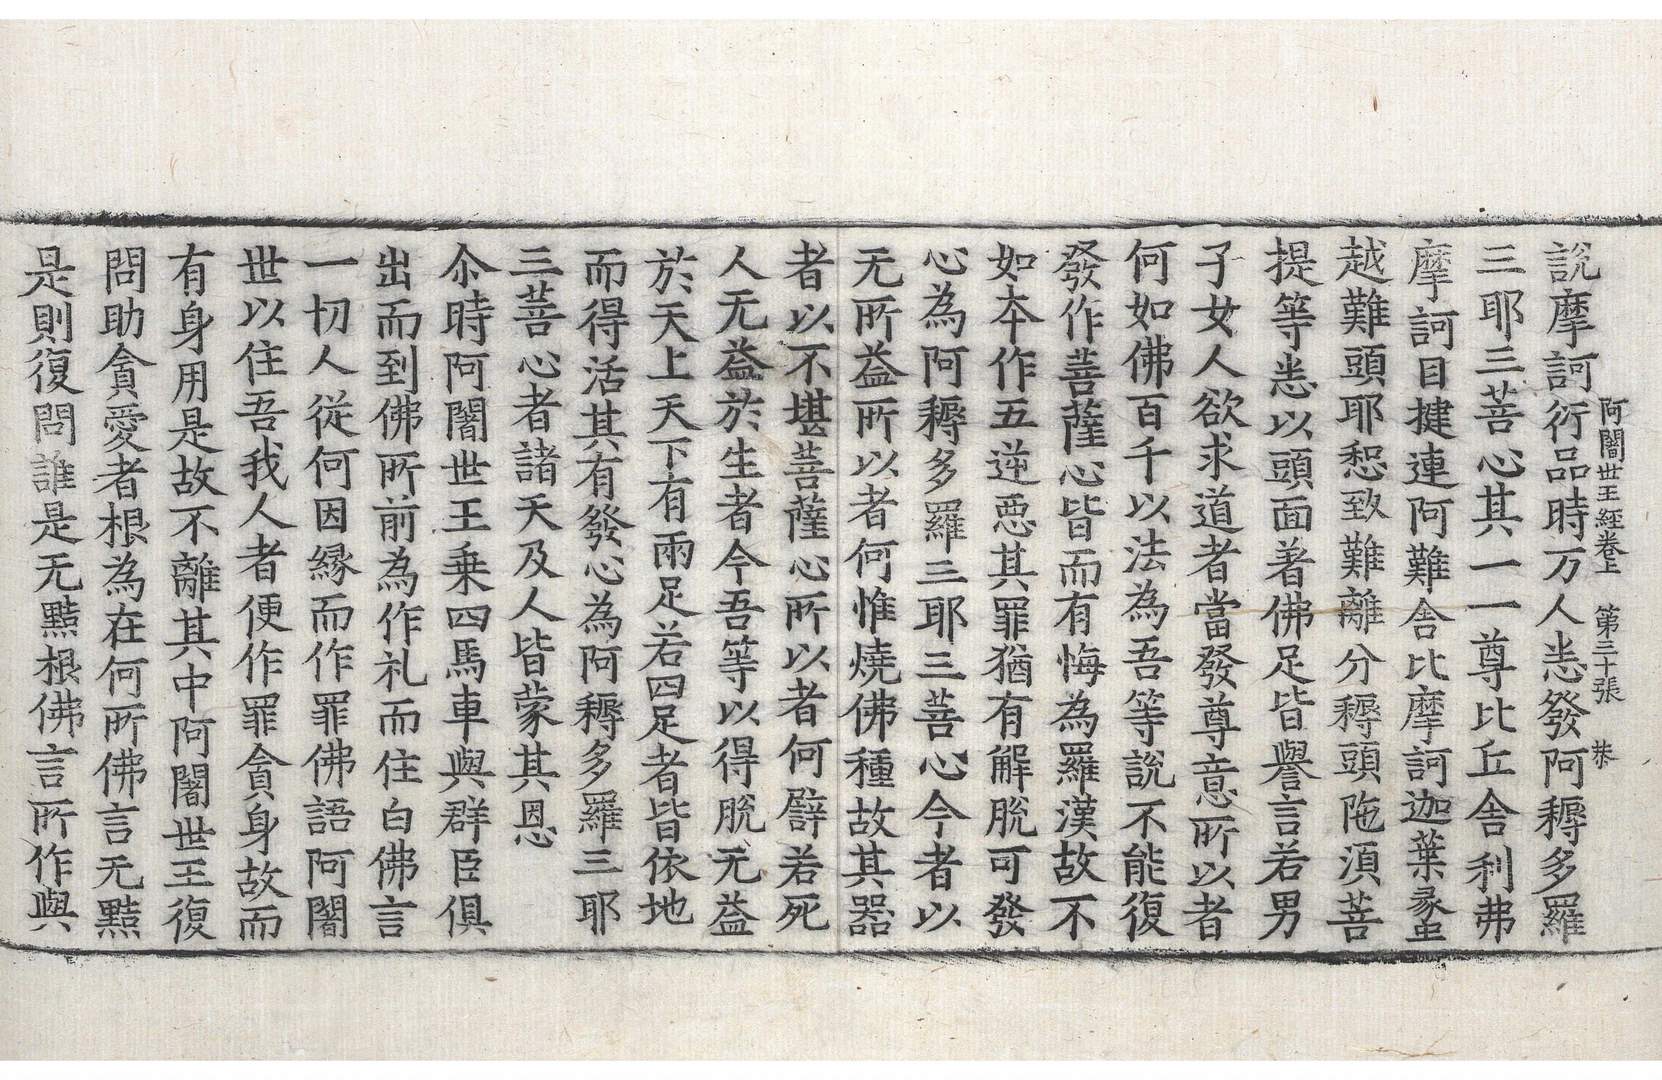 阿闍世王經卷上　第三十張　恭
說摩訶衍品時万人悉發阿耨多羅
三耶三菩心其一一尊比丘舍利弗
摩訶目揵連阿難舍比摩訶迦葉彖蚉
越難頭耶恕致難離分耨頭陁湏菩
提等悉以頭面著佛足皆譽言若男
子女人欲求道者當發尊意所以者
何如佛百千以法為吾等說不能復
發作菩薩心皆而有悔為羅漢故不
如夲作五逆惡其罪猶有解脫可發
心為阿耨多羅三耶三菩心今者以
无所益所以者何惟燒佛種故其器
者以不堪菩薩心所以者何譬若死
人无益於生者今吾等以得脫无益
於天上天下有兩足若四足者皆依地
而得活其有發心為阿耨多羅三耶
三菩心者諸天及人皆蒙其恩
尒時阿闍世王乗四馬車與群臣俱
出而到佛所前為作礼而住白佛言
一切人從何因緣而作罪佛語阿闍
世以住吾我人者便作罪貪身故而
有身用是故不離其中阿闍世王復
問助貪愛者根為在何所佛言无黠
是則復問誰是无黠根佛言所作與